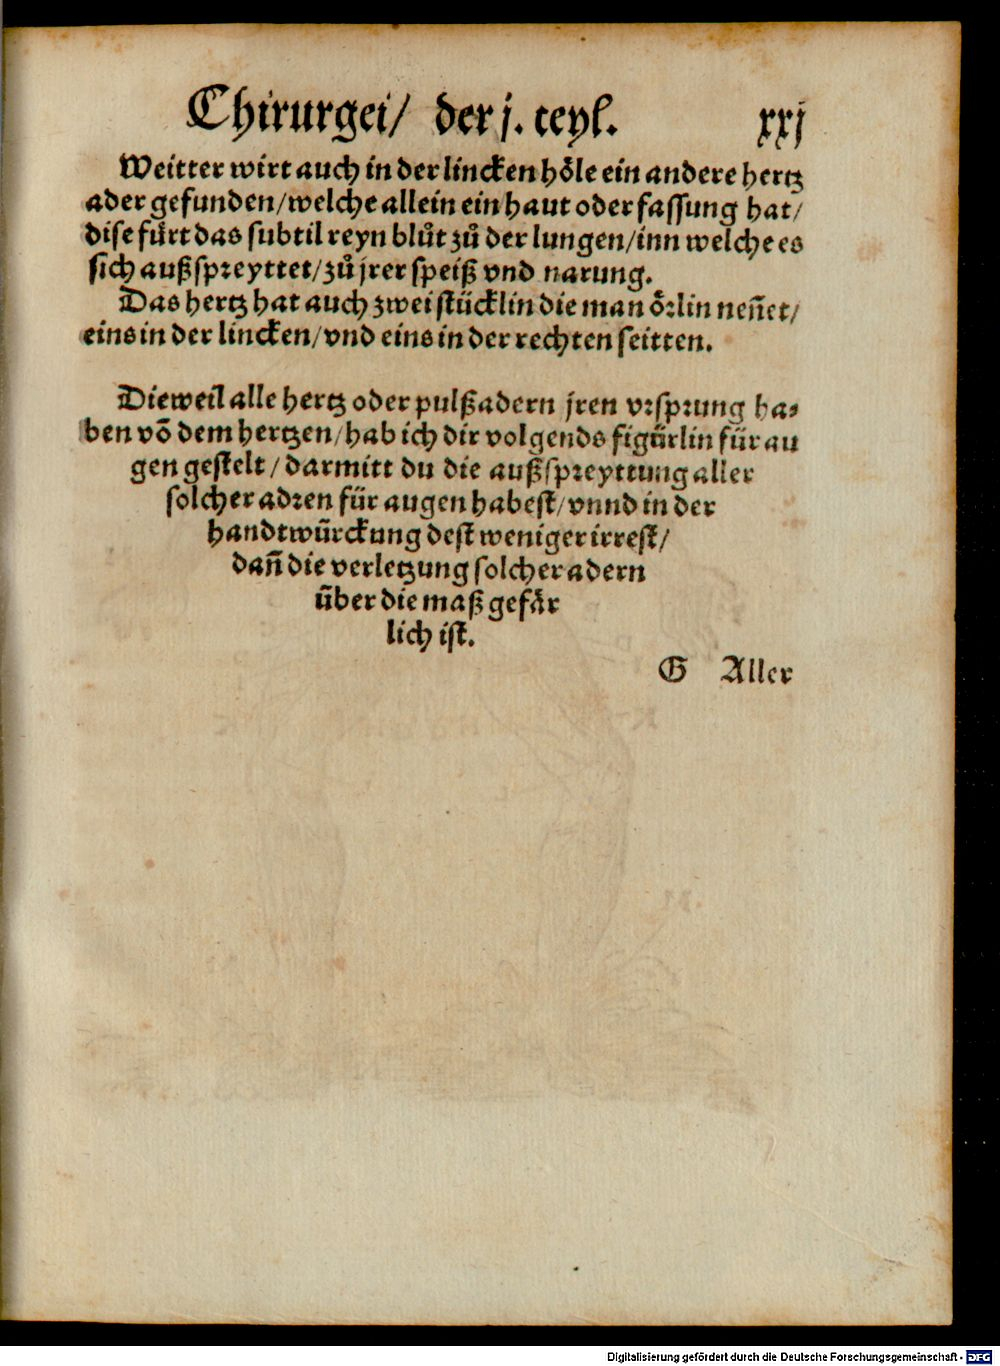 Chirurgei/ der j. teyl. xxj
Weitter wirt auch in der lincken hőle ein andere hertz
ader gefunden/welche allein ein haut oder fassung hat/
dise fůrt das subtil reyn blůt zů der lungen/inn welche es
sich außspreyttet/zů jrer speiß vnd narung.
Das hertz hat auch zwei stücklin die man őrlin neñet/
eins in der lincken/vnd eins in der rechten seitten.
Dieweil alle hertz oder pulßadern jren vrsprung ha⸗
ben võ dem hertzen/hab ich dir volgends figürlin für au
gen gestelt/darmitt du die außspreyttung aller
solcher adren für augen habest/vnnd in der
handtwürckung dest weniger irrest/
dañ die verletzung solcher adern
über die maß gefär
lich ist.
G Aller
Digitalisierung gefördert durch die Deutsche Forschungsgemeinschaft - DFG